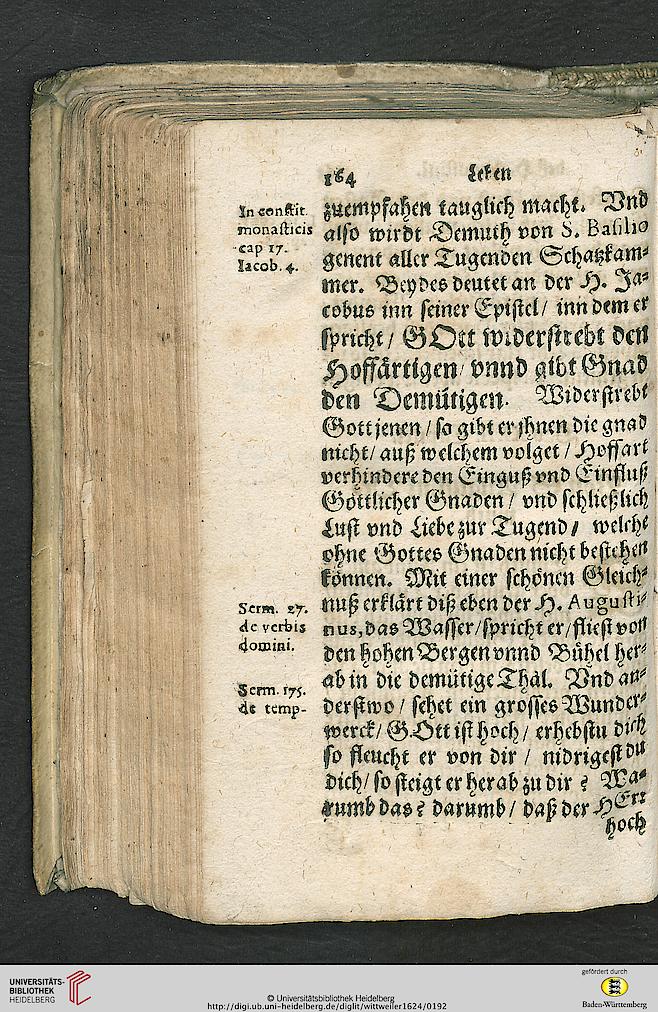 164 Leben
In constit.
monasticis
cap 17.
Iacob. 4.
zuempfahen tauglich macht. Vnd
also wirdt Demuth von S. Basilio
genent aller Tugenden Schatzkam⸗
mer. Beydes deutet an der H. Ja⸗
cobus inn seiner Epistel / inn dem er
spricht / GOtt widerstrebt den
Hoffärtigen / vnnd gibt Gnad
den Demütigen. Widerstrebt
Gott jenen / so gibt er jhnen die gnad
nicht / auß welchem volget / Hoffart
verhindere den Einguß vnd Einfluß
Göttlicher Gnaden / vnd schließlich
Lust vnd Liebe zur Tugend / welche
ohne Gottes Gnaden nicht bestehen
können. Mit einer schönen Gleich⸗
Serm. 27.
de verbis
domini.
nuß erklärt diß eben der H. Augusti⸗
nus, das Wasser / spricht er / fliest von
den hohen Bergen vnnd Bühel her⸗
ab in die demütige Thäl. Vnd an⸗
Serm. 175.
de temp.
derstwo / sehet ein grosses Wunder⸗
werck / GOtt ist hoch / erhebstu dich
so fleucht er von dir / nidrigest du
dich / so steigt er herab zu dir ? Wa⸗
rumb das ? darumb / daß der HErr
hoch
UNIVERSITÄTS-
BIBLIOTHEK
HEIDELBERG
© Universitätsbibliothek Heidelberg
http://digi.ub.uni-heidelberg.de/diglit/wittweiler1624/0192
gefördert durch
Baden-Württemberg